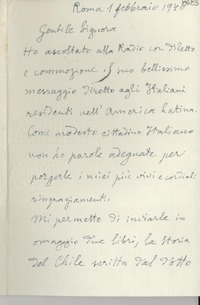 Roma 1 febbraio 19
Gentile Signora
Ho ascoltato alla Radio con diletto
e commozione il suo bellissimo
messaggio diretto agli Italiani
residenti nell'America Latina.
Come modesto cittadino Italiano
non ho parole adeguate per
porgerle i miei più vivi e cordiali
ringraziamenti.
Mi permetto di inviarle in
omaggio due libri, la storia
del Chile scritta dal dotto